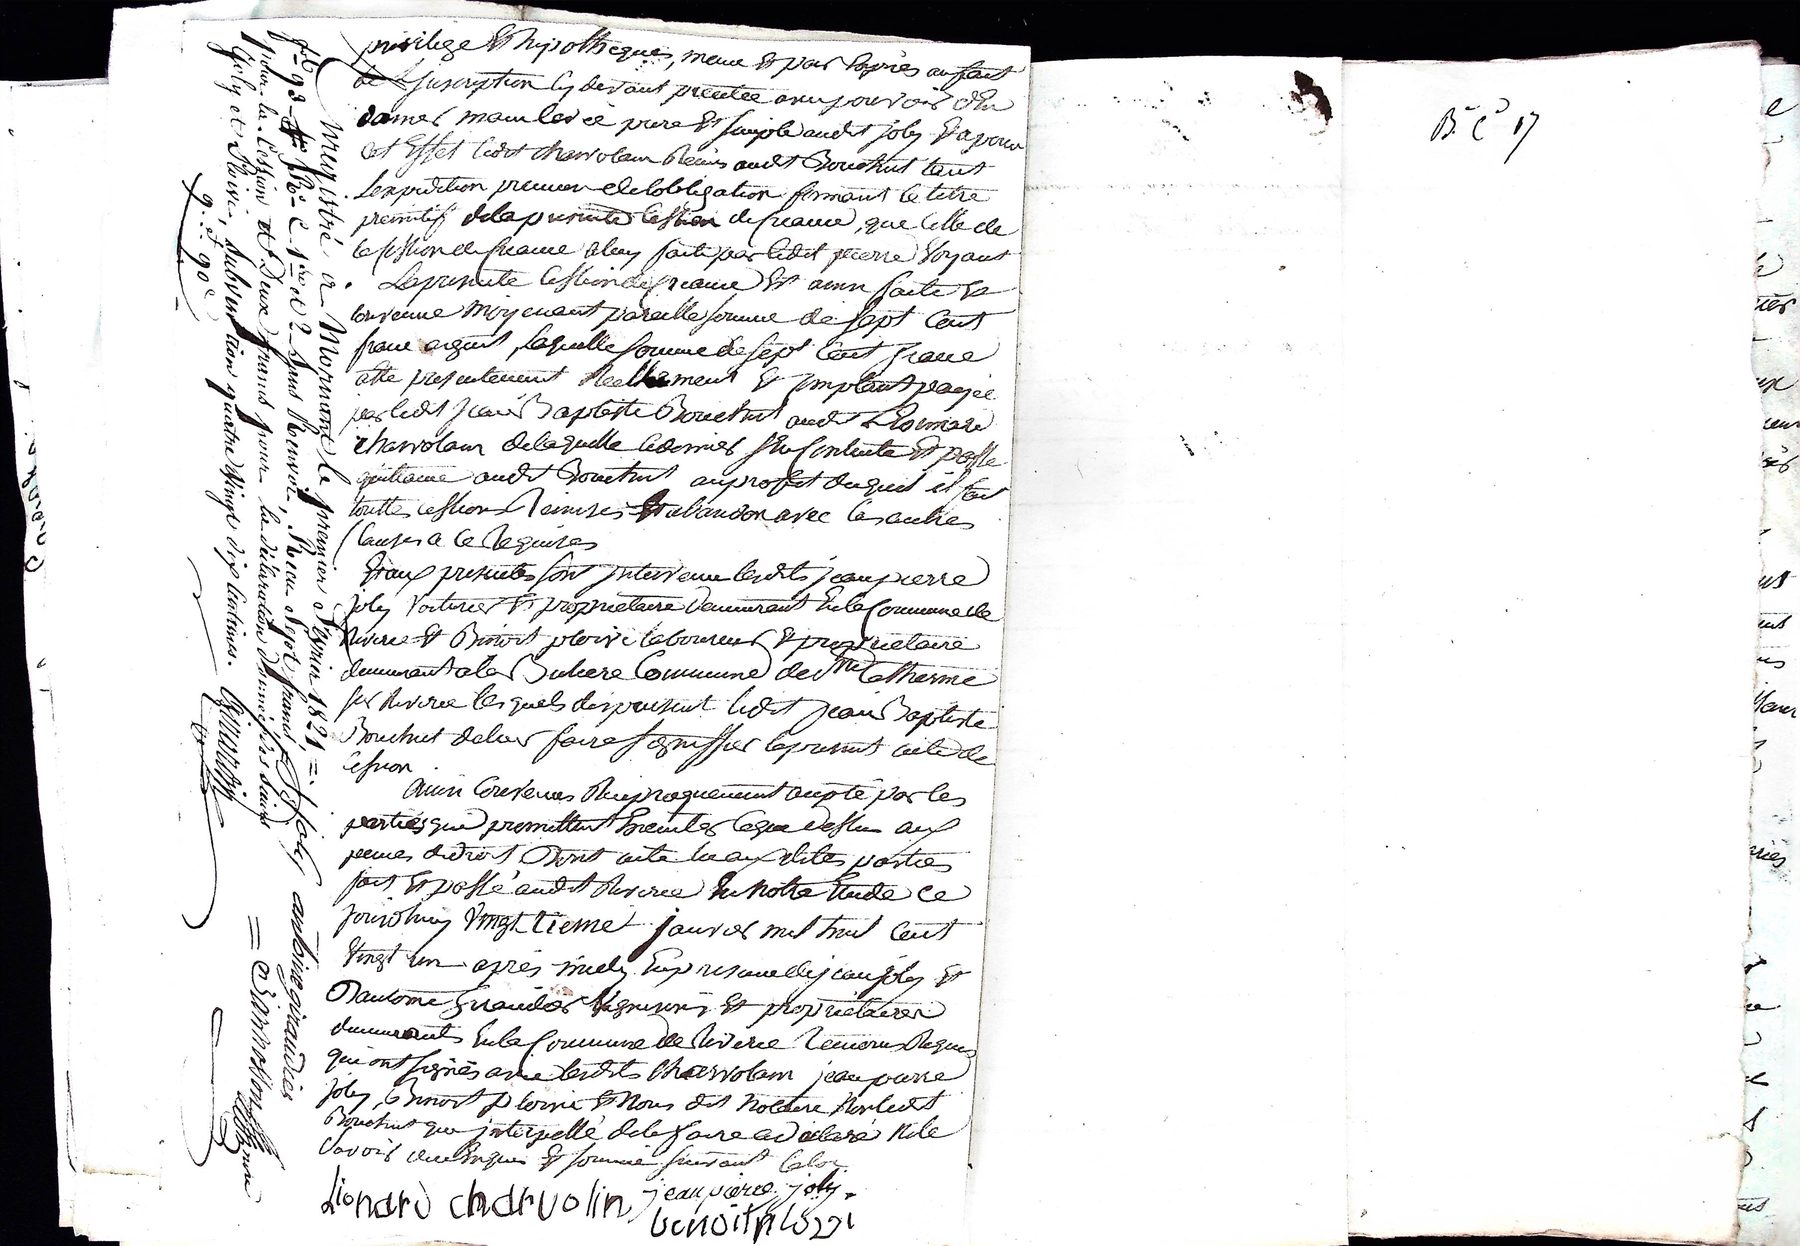 privilege et hipotheques, meme et par exprès au fait
de l'Inscription cy devant precitée avec pouvoir d'en
donner main levée pure et simple audit joly et a pour
cet effet ledit charvolain Remis audit Bouchut tant
l'expedition premiere de lobligation formant le titre
primitif de la presente cession de creance, que celle de
la cession de creance a luy faite par ledit pierre
La presente cession de creance est ainsi faite et
convenue moyenant pareille somme de sept cent
franc argent, laquelle somme de sept cent franc
a été presentement Reellement et comptant payée
par ledit jean Baptiste Bouchut audit Leonard
charvolain de laquelle ce dernier sen contente et passe
quittance audit Bouchut au profit duquel il fait
touttes cessions Remises et abandon avec les autres
clauses a ce Requises
Et aux presentes sont intervenu lesdits jean pierre
joly voiturier et proprietaire demeurant en la commune de
Riverie et Benoit ploivi laboureur et proprietaire
demeurant a la commune de Ste Catherine
sur Riverie lesquels dispensent ledit jean Baptiste
Bouchut de leur faire signiffier le present acte de
cession
Ainsi convenus Reciproquement accepté par les
parties qui promettent executer ce que dessus aux
peines de droit Dont acte lu aux dites parties
fait et passé audit Riverie en notre Etude ce
jourdhuy vingt-tieme janvier mil huit cent
vingt un après midy En presence de jean joly et
Dantoine giraudier vignerons et proprietaires
demeurants en la commune de Riverie Temoins Requis
qui ont signés avec lesdits charvolain jean pierre
joly, Benoit ploivi et Nous dit Notaire Non ledit
Bouchut qui interpellé de le faire a declaré ne le
savoir de ce Enquis et sommé suivant la loi
Lionard charvolin jean pierre joly
benoit
joly antoine giraudier
Enregistré à Mornant le premier Fevrier 1821 =
f° 93 R° C. 1ere et 2 sans Renvoi, Recu sept francs
pour la cession et Deux francs pour la déclaration
joly et Ploivi, subvention quatre vingt dix centimes.
9. f 90 c
B. C 17